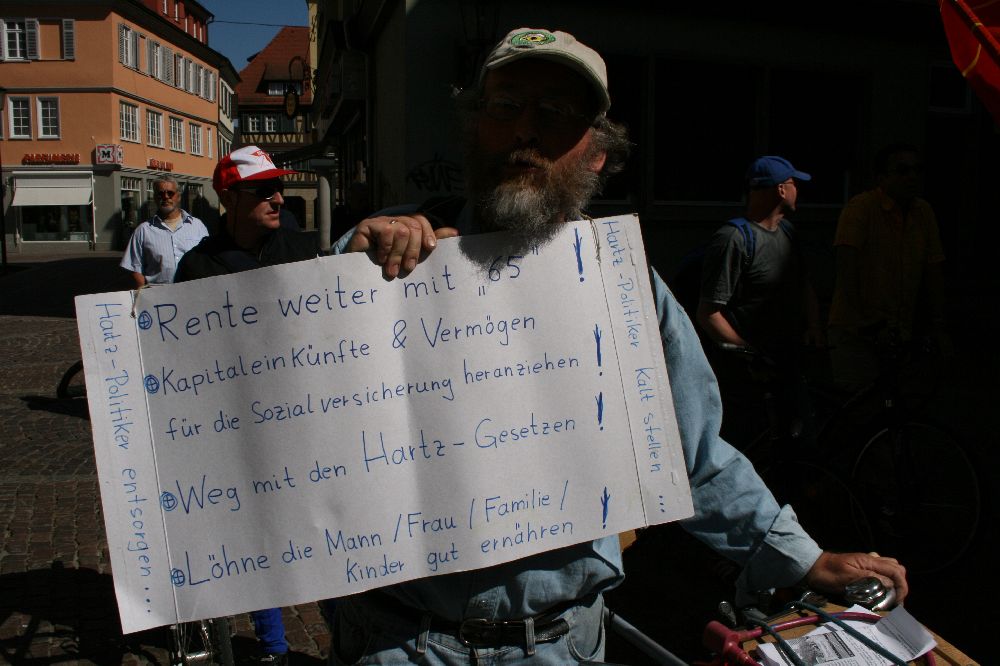 Rente weiter mit „65" !
Kapitaleinkünfte & Vermögen
für die Sozialversicherung heranziehen !
Weg mit den Hartz-Gesetzen !
Löhne die Mann/Frau/Familie/
Kinder gut ernähren !
Hartz-Politiker entsorgen...
Hartz-Politiker kalt stellen ...
M